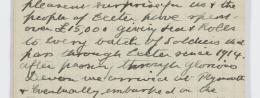 pleasant surprise for us & the
people of Exeter, have spent
over £15,000 giving Tea & Rolls
to every batch of Soldiers that
pass through Exeter since 1914.
After passing through glorious
Devon we arrive at Plymouth
& eventually embarked on the